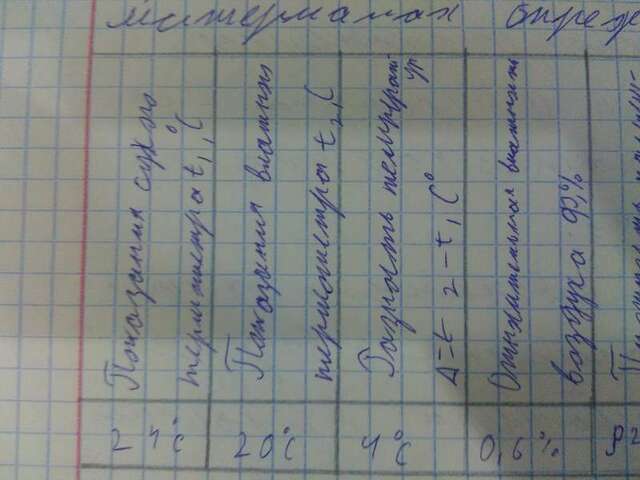 материалах опреж
Показания сухого
термометра t₁, C°
Показания влажного
термометра t₂, C
Разность температур
Δ=t 2-t, C°
Относительная влажность
воздуха φ, %
24°C
20°C
4°C
0,6%